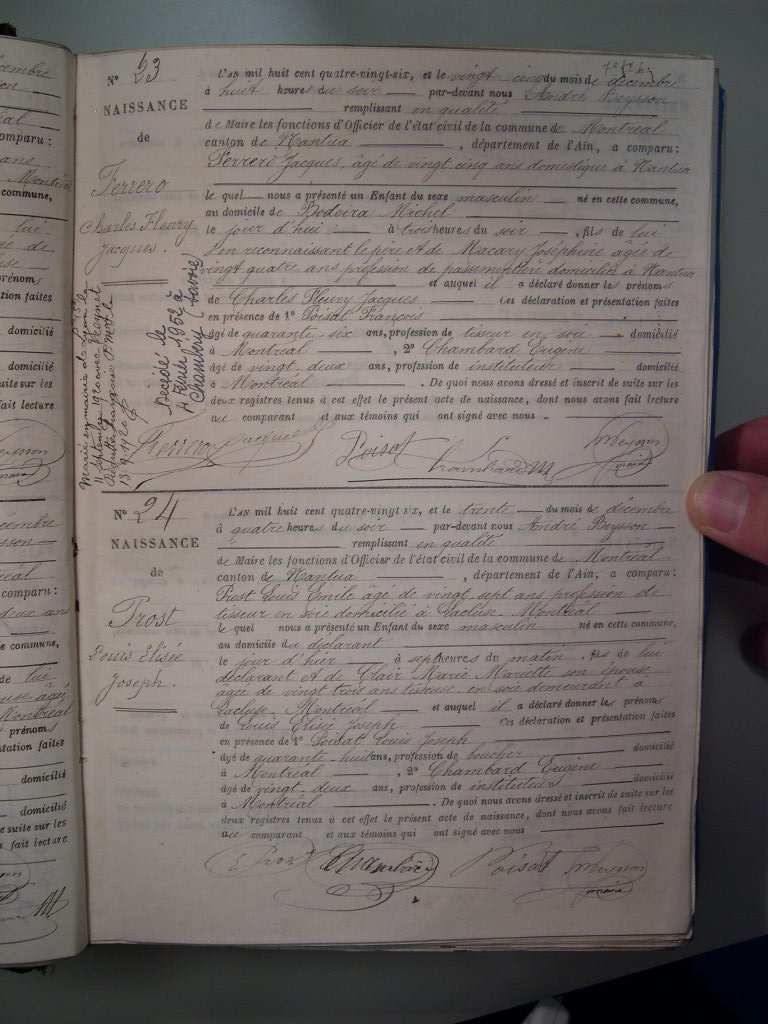 Nº 23
NAISSANCE
de
Ferrero
Charles Fleury
Jacques.
L'AN mil huit cent quatre-vingt-six, et le vingt cinq du mois de décembre
à huit heures du soir par-devant nous André Beysson
remplissant en qualité
de Maire les fonctions d'Officier de l'état civil de la commune de Montréal
canton de Nantua, département de l'Ain, a comparu:
Ferrero Jacques, âgé de vingt cinq ans domestique à Nantua
le quel nous a présenté un Enfant du sexe masculin né en cette commune,
au domicile de Bedoira Michel
le jour d'hui à trois heures du soir, fils de lui
s'en reconnaissant le père et de Macary Joséphine âgée de
vingt quatre ans profession de domicilié à Nantua
et auquel il a déclaré donner les prénoms
de Charles Fleury Jacques Ces déclaration et présentation faites
en présence de 1º Poisat François
âgé de quarante six ans, profession de tisseur en soie domicilié
à Montréal, 2º Chambard Eugène
âgé de vingt deux ans, profession de instituteur domicilié
à Montréal. De quoi nous avons dressé et inscrit de suite sur les
deux registres tenus à cet effet le présent acte de naissance, dont nous avons fait lecture
au comparant et aux témoins qui ont signé avec nous.
Ferrero Jacques Poisat Chambard
maire
Marié en mairie de Lyon le
11 septembre 1920 avec
13.9.1920
Décédé le
4 Février 1952 à
Chambéry (Savoie)
Nº 24
NAISSANCE
de
Prost
Louis Elisée
Joseph.
L'AN mil huit cent quatre-vingt-six, et le trente du mois de décembre
à quatre heures du soir par-devant nous André Beysson
remplissant en qualité
de Maire les fonctions d'Officier de l'état civil de la commune de Montréal
canton de Nantua, département de l'Ain, a comparu:
Prost Louis Emile âgé de vingt sept ans profession de
tisseur en soie domicilié à Lacluse, Montréal
le quel nous a présenté un Enfant du sexe masculin né en cette commune,
au domicile du déclarant
le jour d'hier à sept heures du matin, fils de lui
déclarant et de Clair Marie Mariette son épouse
âgée de vingt trois ans tisseuse en soie demeurant à
Lacluse, Montréal et auquel il a déclaré donner les prénoms
de Louis Elisée Joseph Ces déclaration et présentation faites
en présence de 1º Poisat Louis Joseph
âgé de quarante huit ans, profession de boucher domicilié
à Montréal, 2º Chambard Eugène
âgé de vingt deux ans, profession de instituteur domicilié
à Montréal. De quoi nous avons dressé et inscrit de suite sur les
deux registres tenus à cet effet le présent acte de naissance, dont nous avons fait lecture
au comparant et aux témoins qui ont signé avec nous
E Prost Chambard Poisat
maire